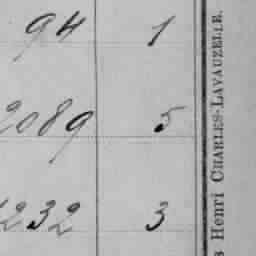 94 1
2089 5
1232 3
Henri CHARLES-LAVAUZELLE.